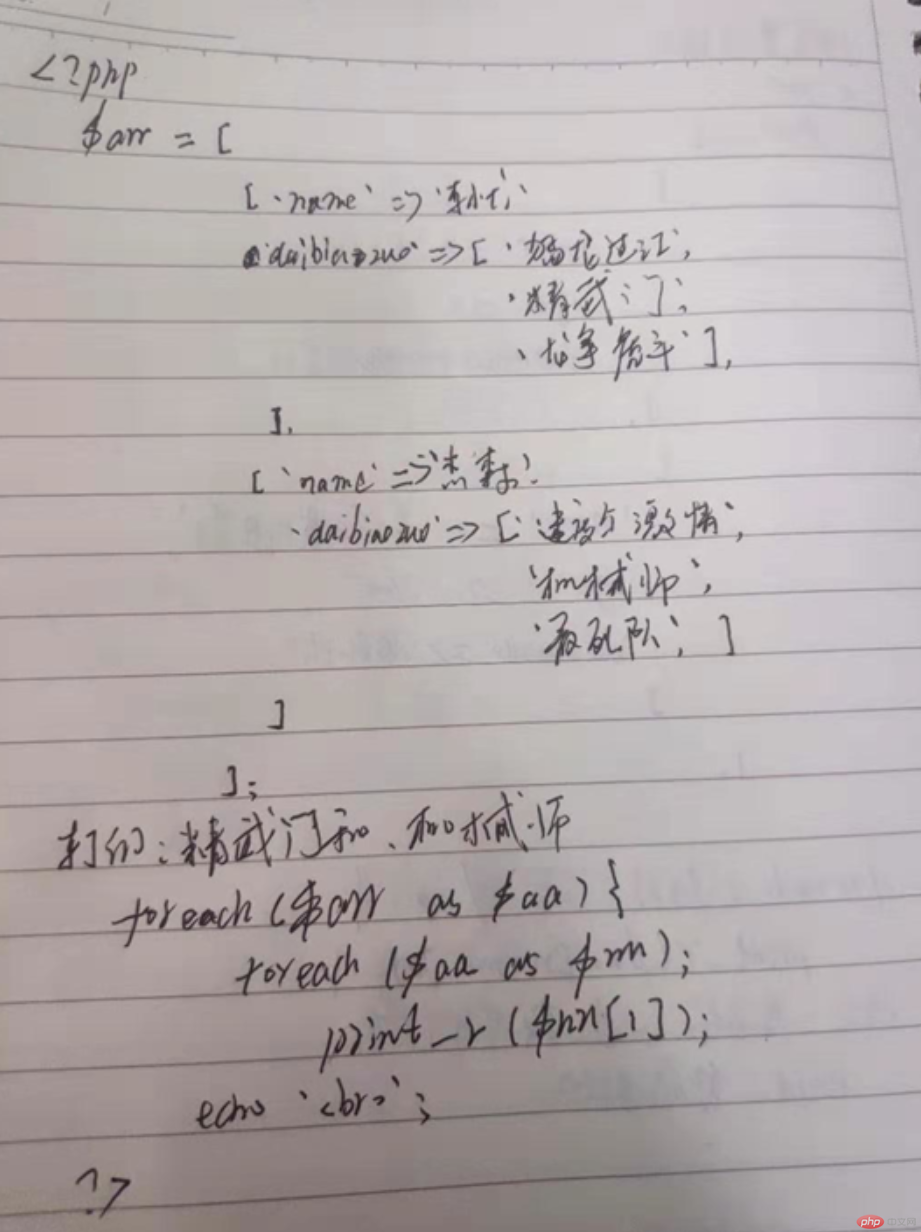 <?php
$arr = [
['name' => '李小龙'
'daibiaozuo' => ['猛龙过江',
'精武门',
'龙争虎斗'],
],
['name' => '杰森'
'daibiaozuo' => ['速度与激情',
'机械师',
'敢死队', ]
]
];
打印:精武门和、机械师
foreach ($arr as $aa) {
foreach ($aa as $nn);
print_r ($nn[1]);
echo '<br>';
?>
php